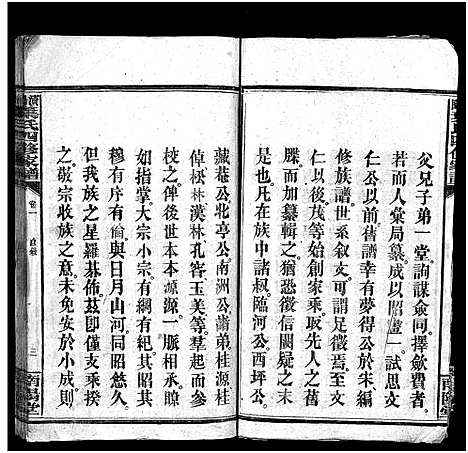 父兄子弟一堂詢謀僉同擇斂費者
若而人彙局纂成以昭畫一試思文
仁公以前舊譜幸有夢得公於宋編
修族譜世系叙文可考而徵焉至文
仁以後茂等始創家乗取先人之
牒而加纂輯之猶恐徵信闕疑之未
周爰凡在族中諸叔臨河公西坪公
藏菴公北亭公南洲公蕭弟桂源桂
倬松林漢林孔容玉美等羣爲參
校之俾後世本本源源一展卷
如指掌大小宗有綱有紀其昭其
穆有序有倫與日月山河同昭悠久
但我族之星羅棊佈茲即僅支乘揆
之敬宗收族之意未免安於小成則
葉氏四修家譜
卷一
三
南陽堂